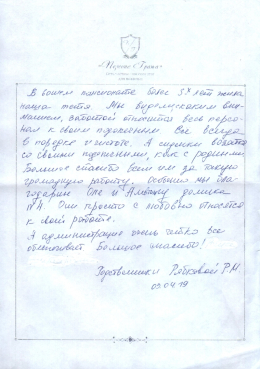 В вашем пансионате более 3х лет жила
наша тетя. Мы видели с каким вни-
манием, заботой относится весь персо-
нал к своим подопечным. Все всегда
в порядке и чистоте. А сиделки возятся
со своими подопечными, как с родными.
Большое спасибо всем им за такую
громадную работу. Особенно мы бла-
годарим Олю и Альбину домика
№4. Они просто с любовью относятся
к своей работе.
А администрация очень четко все
обеспечивает. Большое спасибо!
Родственники Рябковой Р.М.
09.04.19